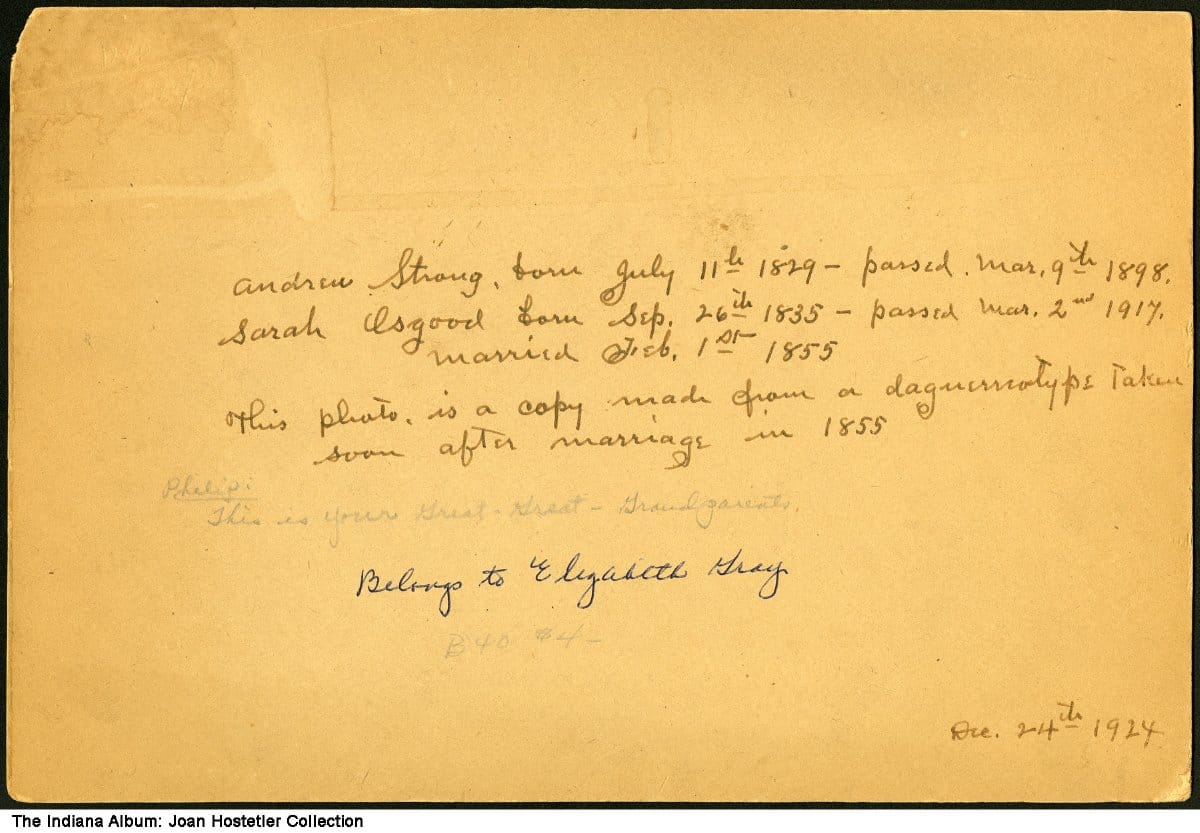 Andrew Strong, born July 11th 1829 - passed. Mar. 9th 1898.
Sarah Osgood born Sep. 26th 1835 - passed Mar. 2nd 1917.
married Feb. 1st 1855
This photo. is a copy made from a daguerreotype taken
soon after marriage in 1855
Philip:
This is your Great-Great-Grandparents.
Belongs to Elizabeth Gray
B40 $4-
Dec. 24th 1924
The Indiana Album: Joan Hostetler Collection